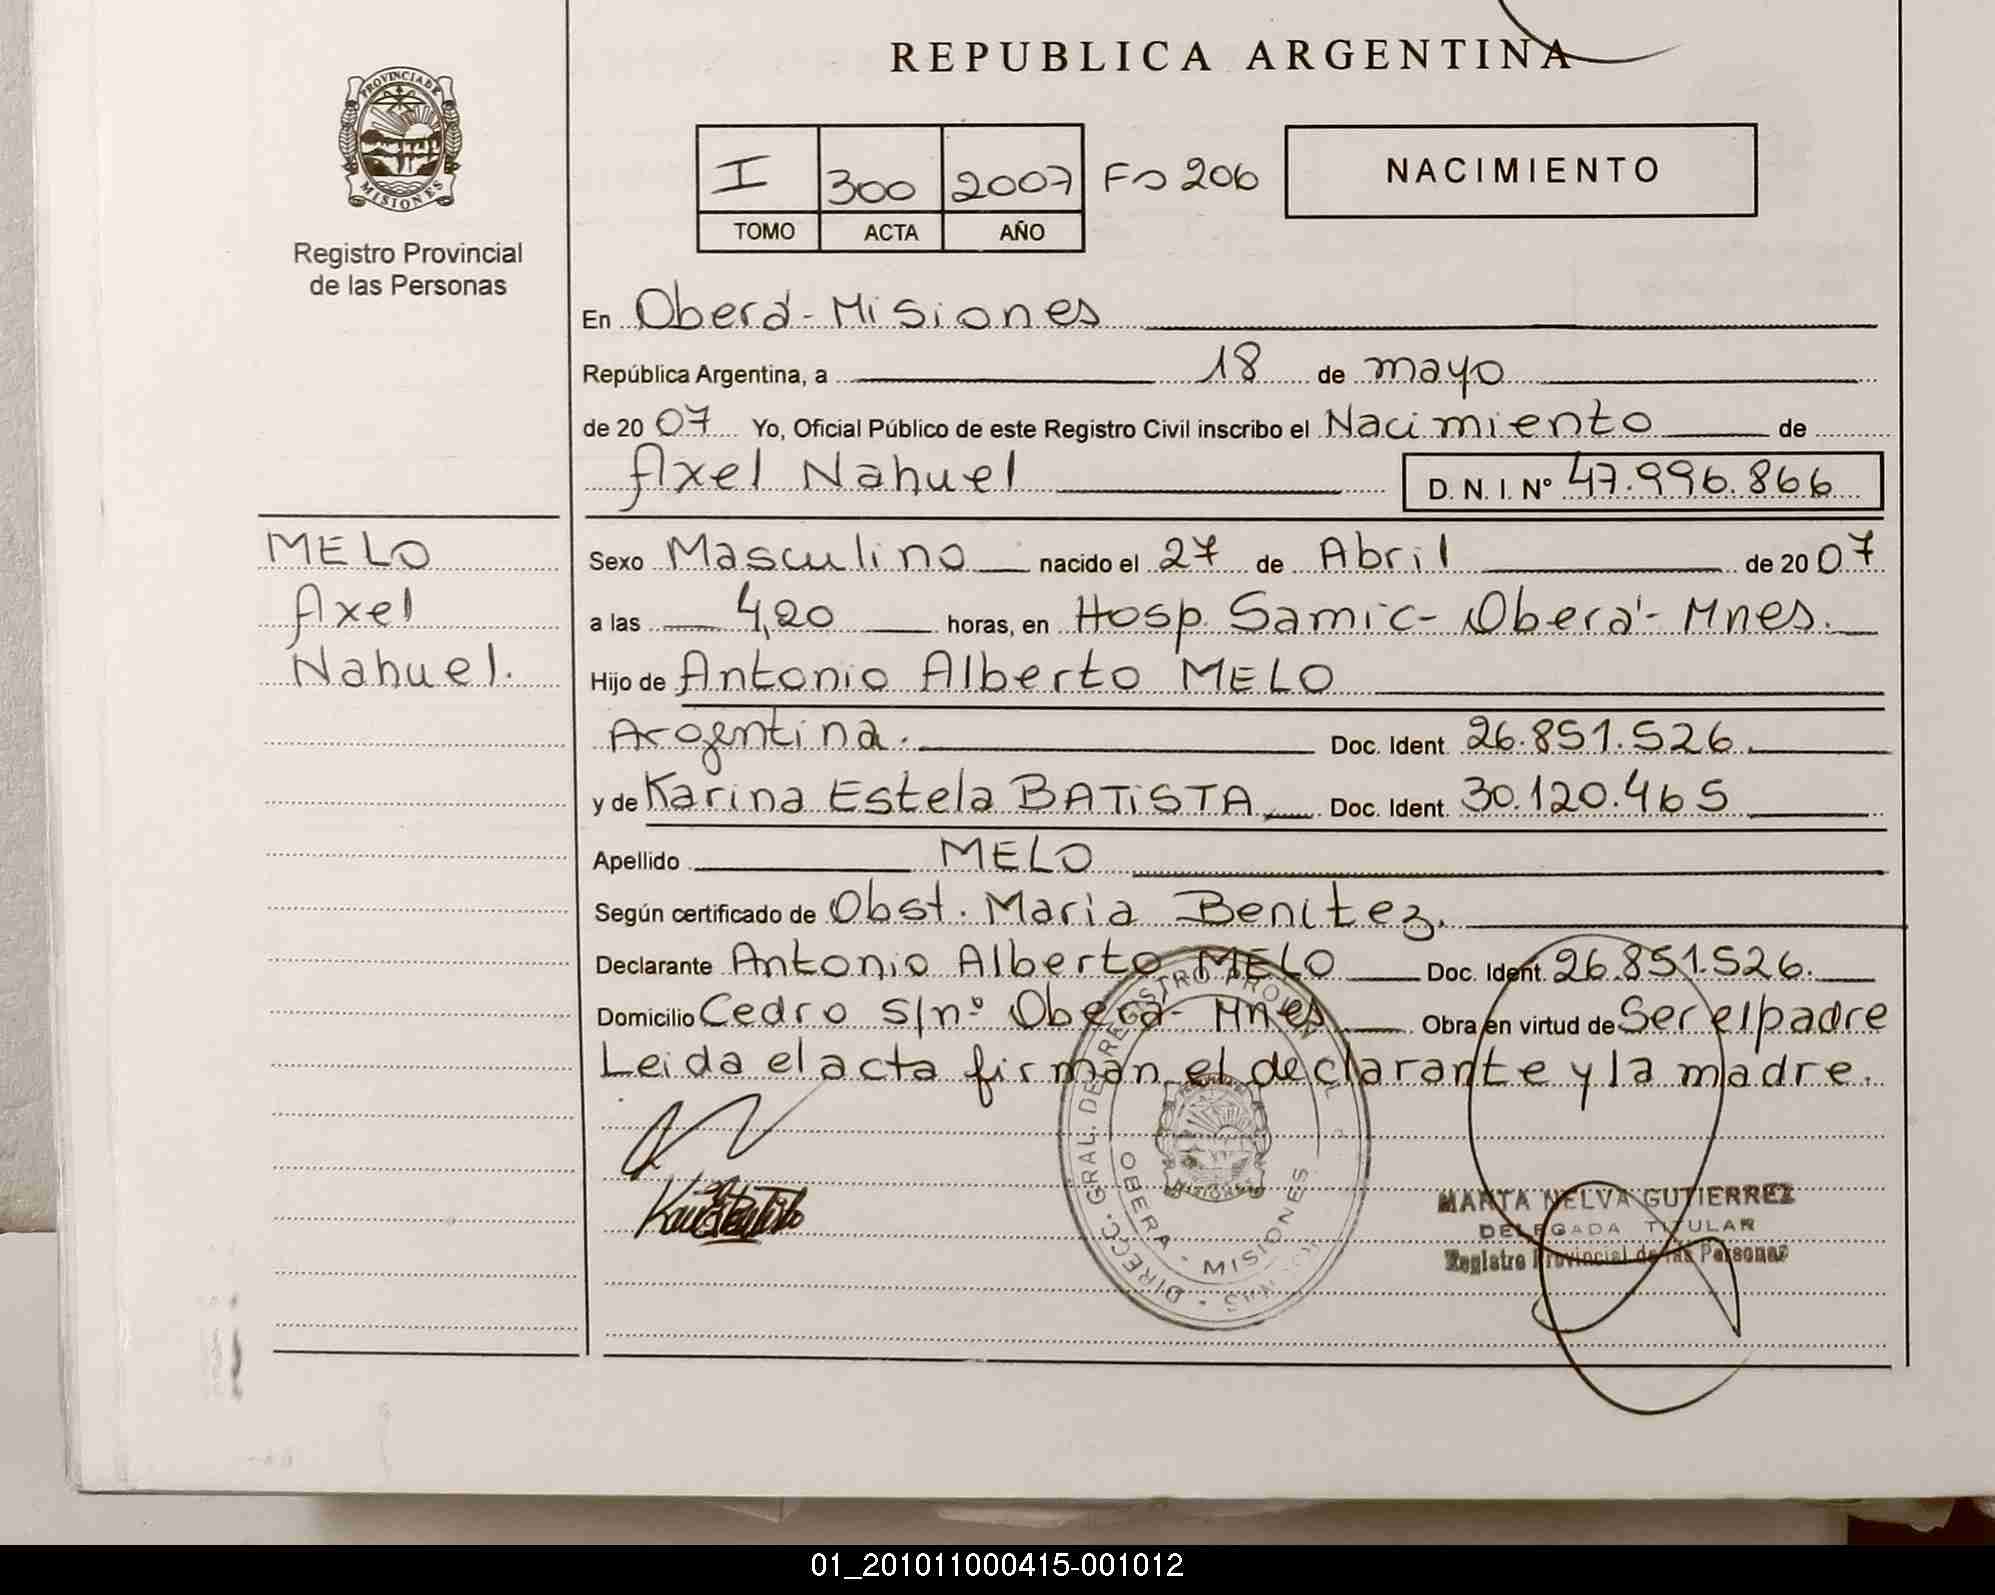 REPUBLICA ARGENTINA
PROVINCIA DE MISIONES
Registro Provincial
de las Personas
I 300 2007 Fo 206
TOMO ACTA AÑO
NACIMIENTO
En Oberá - Misiones
República Argentina, a 18 de mayo
de 2007 Yo, Oficial Público de este Registro Civil inscribo el Nacimiento de
Axel Nahuel D. N. I. Nº 47.996.866
MELO
Axel
Nahuel.
Sexo Masculino nacido el 27 de Abril de 2007
a las 4,20 horas, en Hosp. Samic - Oberá - Mnes.
Hijo de Antonio Alberto MELO
Argentina. Doc. Ident. 26.851.526
y de Karina Estela BATISTA Doc. Ident. 30.120.465
Apellido MELO
Según certificado de Obst. Maria Benitez.
Declarante Antonio Alberto MELO Doc. Ident. 26.851.526.
Domicilio Cedro s/nº Oberá - Mnes Obra en virtud de Ser el padre
Leida el acta firman el declarante y la madre.
OBERA - MISIONES
MARTA NELVA GUTIERREZ
DELEGADA TITULAR
Registro Provincial de las Personas
01_201011000415-001012